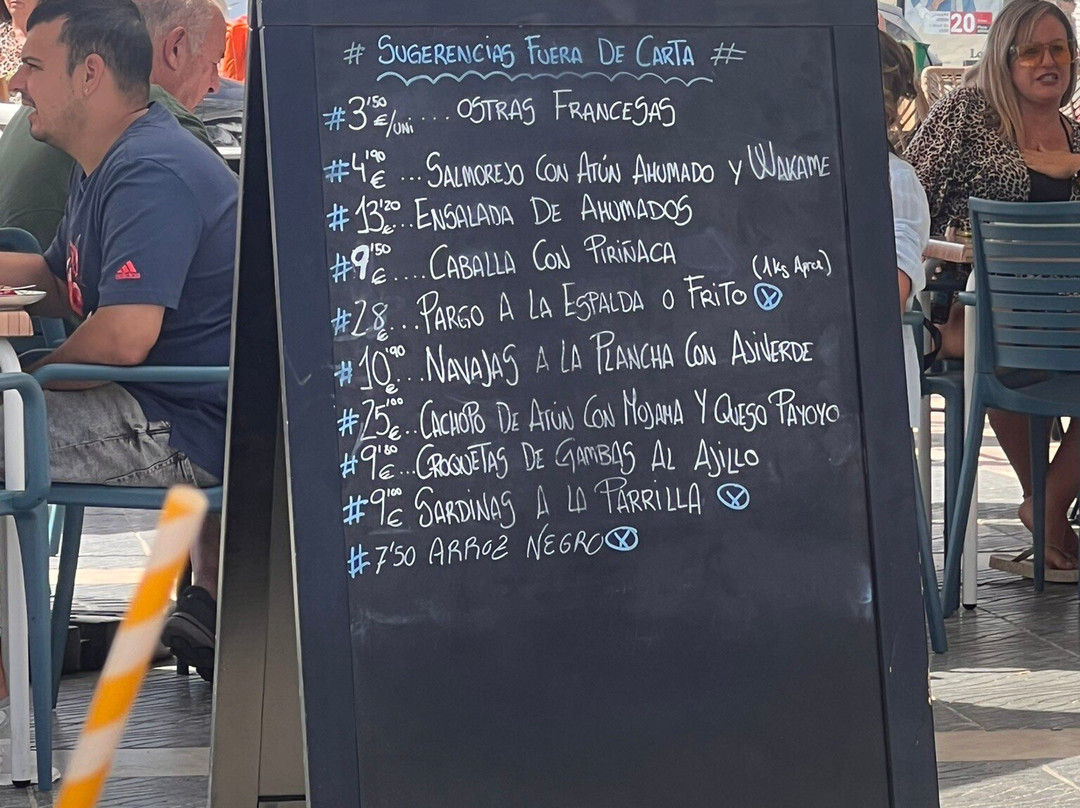 # SUGERENCIAS FUERA DE CARTA #
#3'50€/UNI.... OSTRAS FRANCESAS
#4'90€...SALMOREJO CON ATÚN AHUMADO Y WAKAME
#13'20€...ENSALADA DE AHUMADOS
#9'50€....CABALLA CON PIRIÑACA
(1Kg Aprox)
#28€...PARGO A LA ESPALDA O FRITO ⓧ
#10'90€...NAVAJAS A LA PLANCHA CON AJIVERDE
#25'00€..CACHOPO DE ATÚN CON MOJAMA Y QUESO PAYOYO
#9'80€...CROQUETAS DE GAMBAS AL AJILLO
#9'00€ SARDINAS A LA PARRILLA ⓧ
#7'50 ARROZ NEGRO ⓧ
20